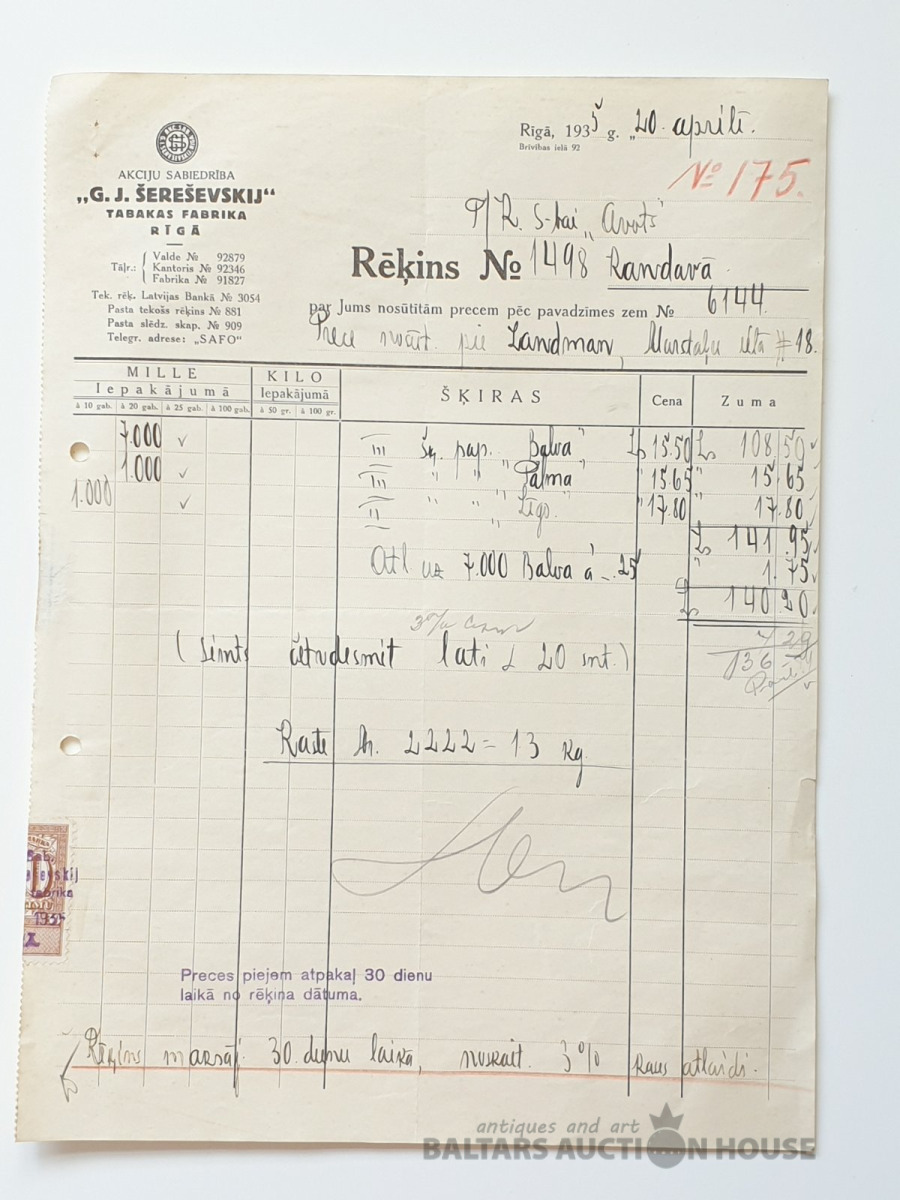 AKCIJU SABIEDRĪBA
„G. J. ŠEREŠEVSKIJ“
TABAKAS FABRIKA
RĪGĀ
Tāļr.: Valde № 92879
Kantoris № 92346
Fabrika № 91827
Tek. rēķ. Latvijas Bankā № 3054
Pasta tekošs rēķins № 881
Pasta slēdz. skap. № 909
Telegr. adrese: „SAFO“
Rīgā, 1935 g. „20. aprilī.
Brīvības ielā 92
№ 175.
P/R. S-bai „Avots“
Rēķins № 1498 Kandavā.
par Jums nosūtītām precem pēc pavadzīmes zem № 6144.
Prece pie Landman, Marstaļu ielā #18.
MILLE KILO ŠĶIRAS Cena Zuma
Iepakājumā Iepakājumā
à 10 gab. à 20 gab. à 25 gab. à 100 gab. à 50 gr. à 100 gr.
7.000 III šķ. pap. „Balva“ Ls 15.50 Ls 108 50
1.000 III " " „Palma " 15.65 " 15 65
1.000 II " " „Līgo“ " 17.80 " 17.80
Ls 141.95
Atl. uz 7.000 Balva à -.25 " 1.75
Ls 140 20
3%
4 29
136
(Simts četrdesmit lati & 20 snt.)
Kaste Nr. 2222 = 13 kg.
1935
Preces pieņem atpakaļ 30 dienu
laikā no rēķina dātuma.
Rēķins 30 dienu laikā, noskait. 3% kases atlaidi.
antiques and art
BALTARS AUCTION HOUSE